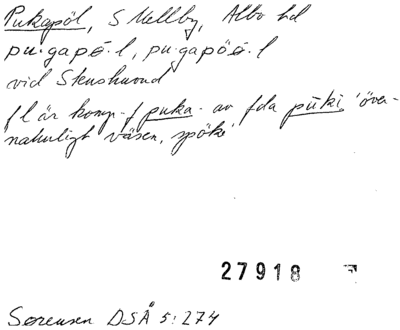 Pukapöl, S Mellby, Albo hd
pu·gapö·l, pu·gapöö·l
vid Stenshuvud
f l är komp.-f puka- av fda pūki 'över-
naturligt väsen, spöke'
27918
Sørensen DSÅ 5:274